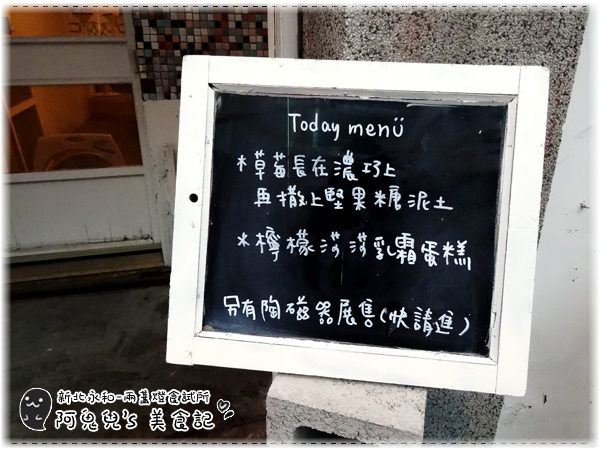 Today menü
*草莓長在濃巧上
再撒上堅果糖泥土
*檸檬莎莎乳霜蛋糕
另有陶磁器展售(快請進)
新北永和-兩盞燈食試所
阿兔兒's 美食記